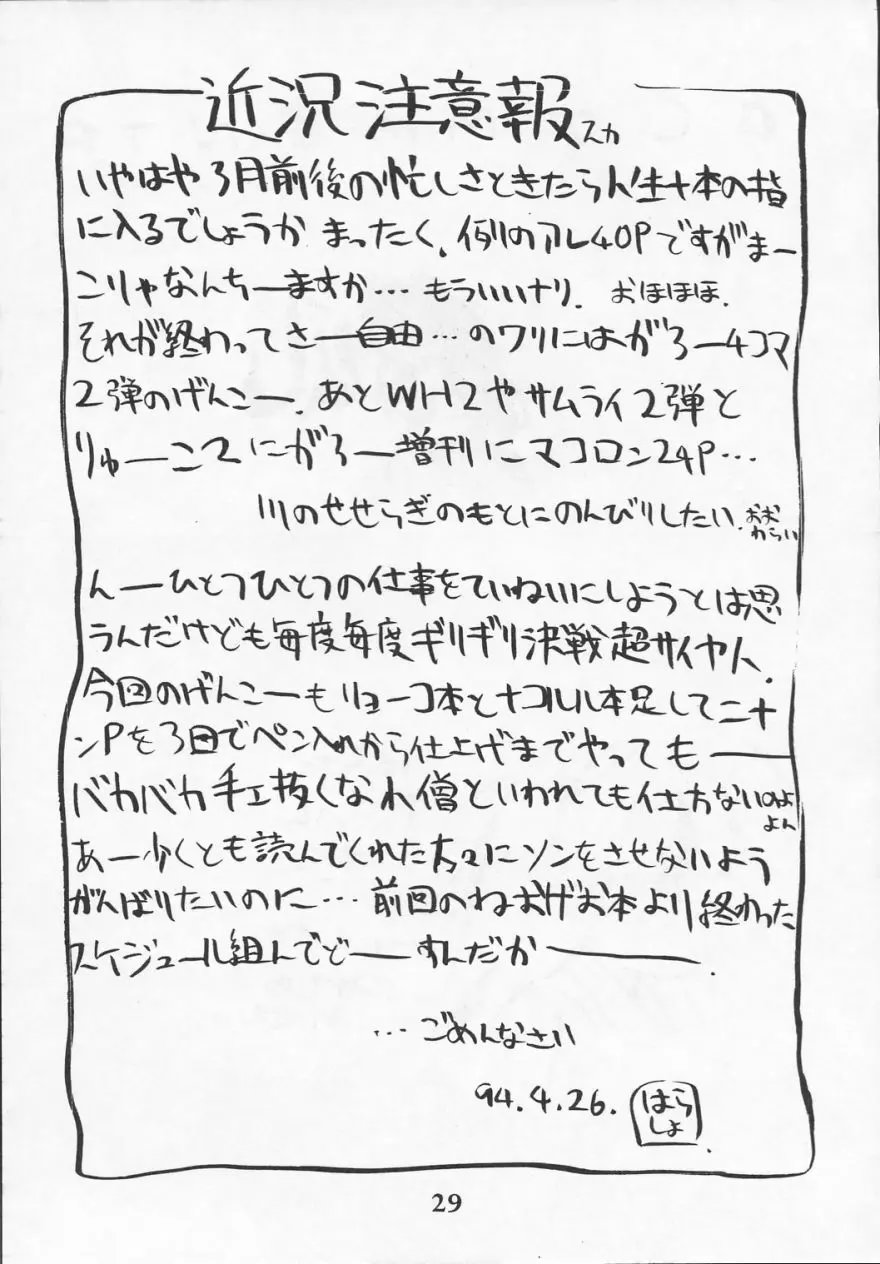 近況注意報スカ
いやはや3月前後の忙しさときたら人生十本の指
に入るでしょうか まったく、例のアレ40Pですがまー
こりゃなんちーますか…もういいナリ. おほほほ.
それが終わってさー自由…のワリにはがろー4コマ
2弾のげんこー. あとWH2やサムライ2弾と
りゅーこ2にがろー増刊にマコロン24P…
川のせせらぎのもとにのんびりしたい. おおわらい
んーひとつひとつの仕事をていねいにしようとは思
うんだけども毎度毎度ギリギリ決戦超サイヤ人.
今回のげんこーもリョーコ本とナコルル本足して二十
ンPを3日でペン入れから仕上げまでやってもー
バカバカ手エ抜くなれ僧といわれても仕方ないのよよん
あー少くとも読んでくれた方々にソンをさせないよう
がんばりたいのに…前回のねおげお本より終わった
スケジュール組んでどーすんだかー.
…ごめんなさい
94.4.26. はらしょ.
29